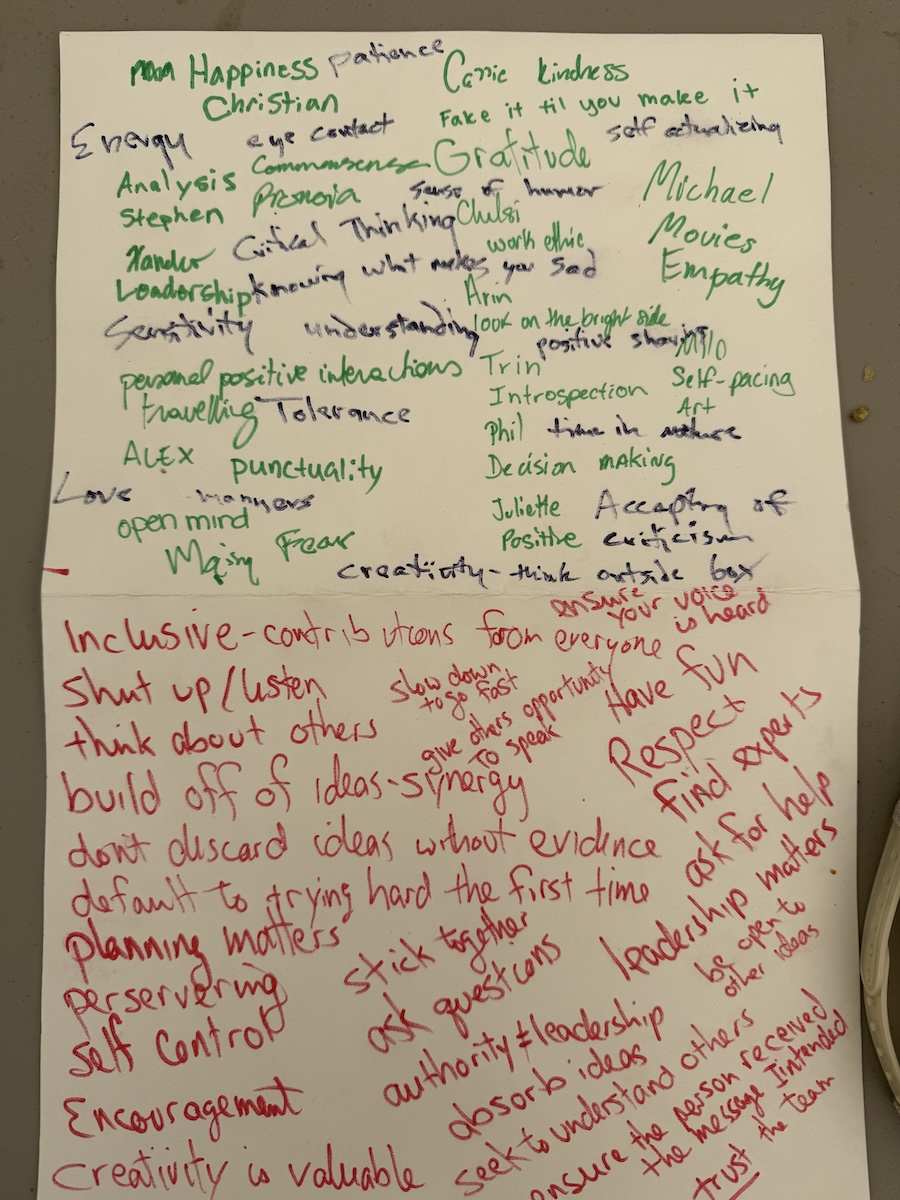 Happiness patience
Christian
Carrie kindness
Fake it til you make it
Energy eye contact
self actualizing
Analysis Commonsense Gratitude
Stephen Pronoia sense of humor
Michael
Xander Critical Thinking Chelsi
work ethic
Movies
Leadership knowing what makes you sad
Empathy
Arin
Sensitivity understanding
look on the bright side
positive showing
Milo
personal positive interactions
Trin
Self-pacing
travelling Tolerance
Introspection
Art
Phil time in nature
ALEX punctuality
Decision MAKING
Love manners
Juliette Accepting of
open mind
Positive criticism
Maisny Fear
creativity-think outside box
Inclusive-contributions from everyone
ensure
your voice
is heard
Shut up/listen
slow down
to go fast
Have fun
think about others
give others opportunity
To speak
Respect
build off of ideas-synergy
find experts
don't discard ideas without evidence
ask for help
default to trying hard the first time
leadership matters
planning matters
stick together
be open to
other ideas
perservering
ask questions
self control
authority ≠ leadership
absorb ideas
Encouragement
seek to understand others
ensure the person received
the message I intended
creativity is valuable
trust the team